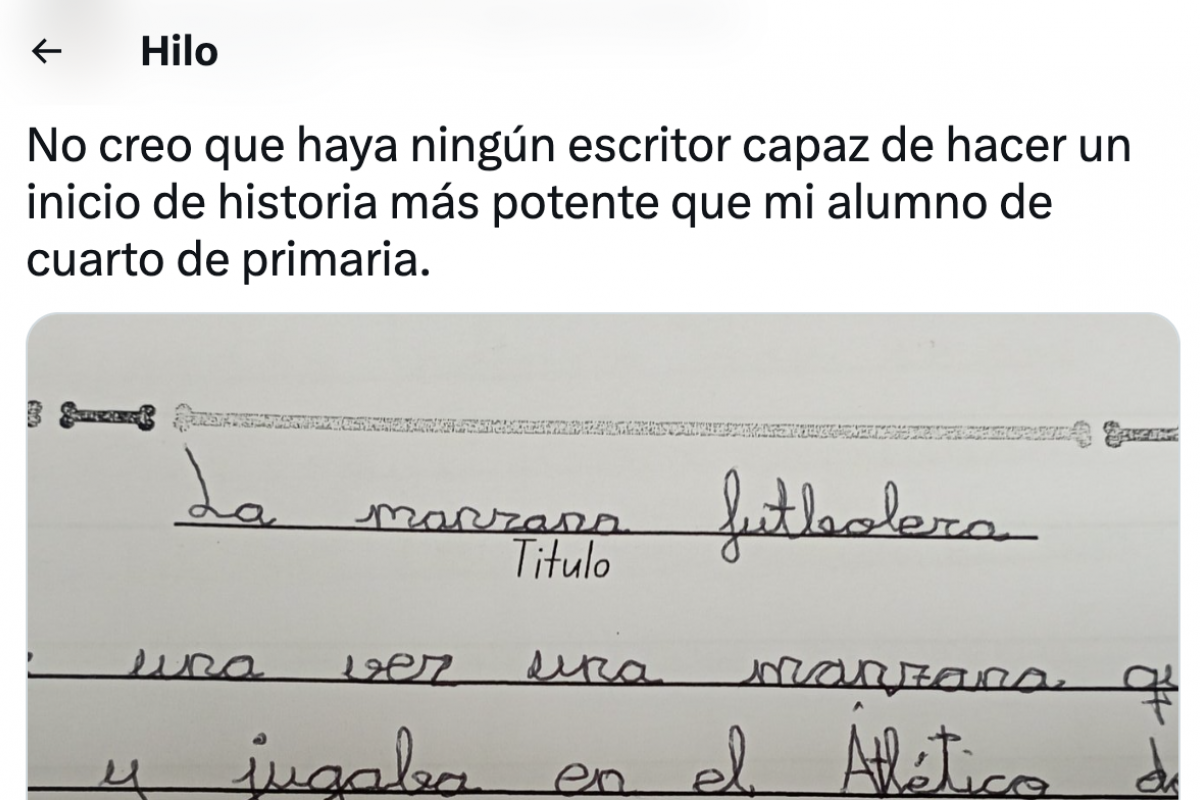 Hilo
No creo que haya ningún escritor capaz de hacer un
inicio de historia más potente que mi alumno de
cuarto de primaria.
La manzana futbolera
Titulo
una vez una manzana
y jugaba en el Atlético